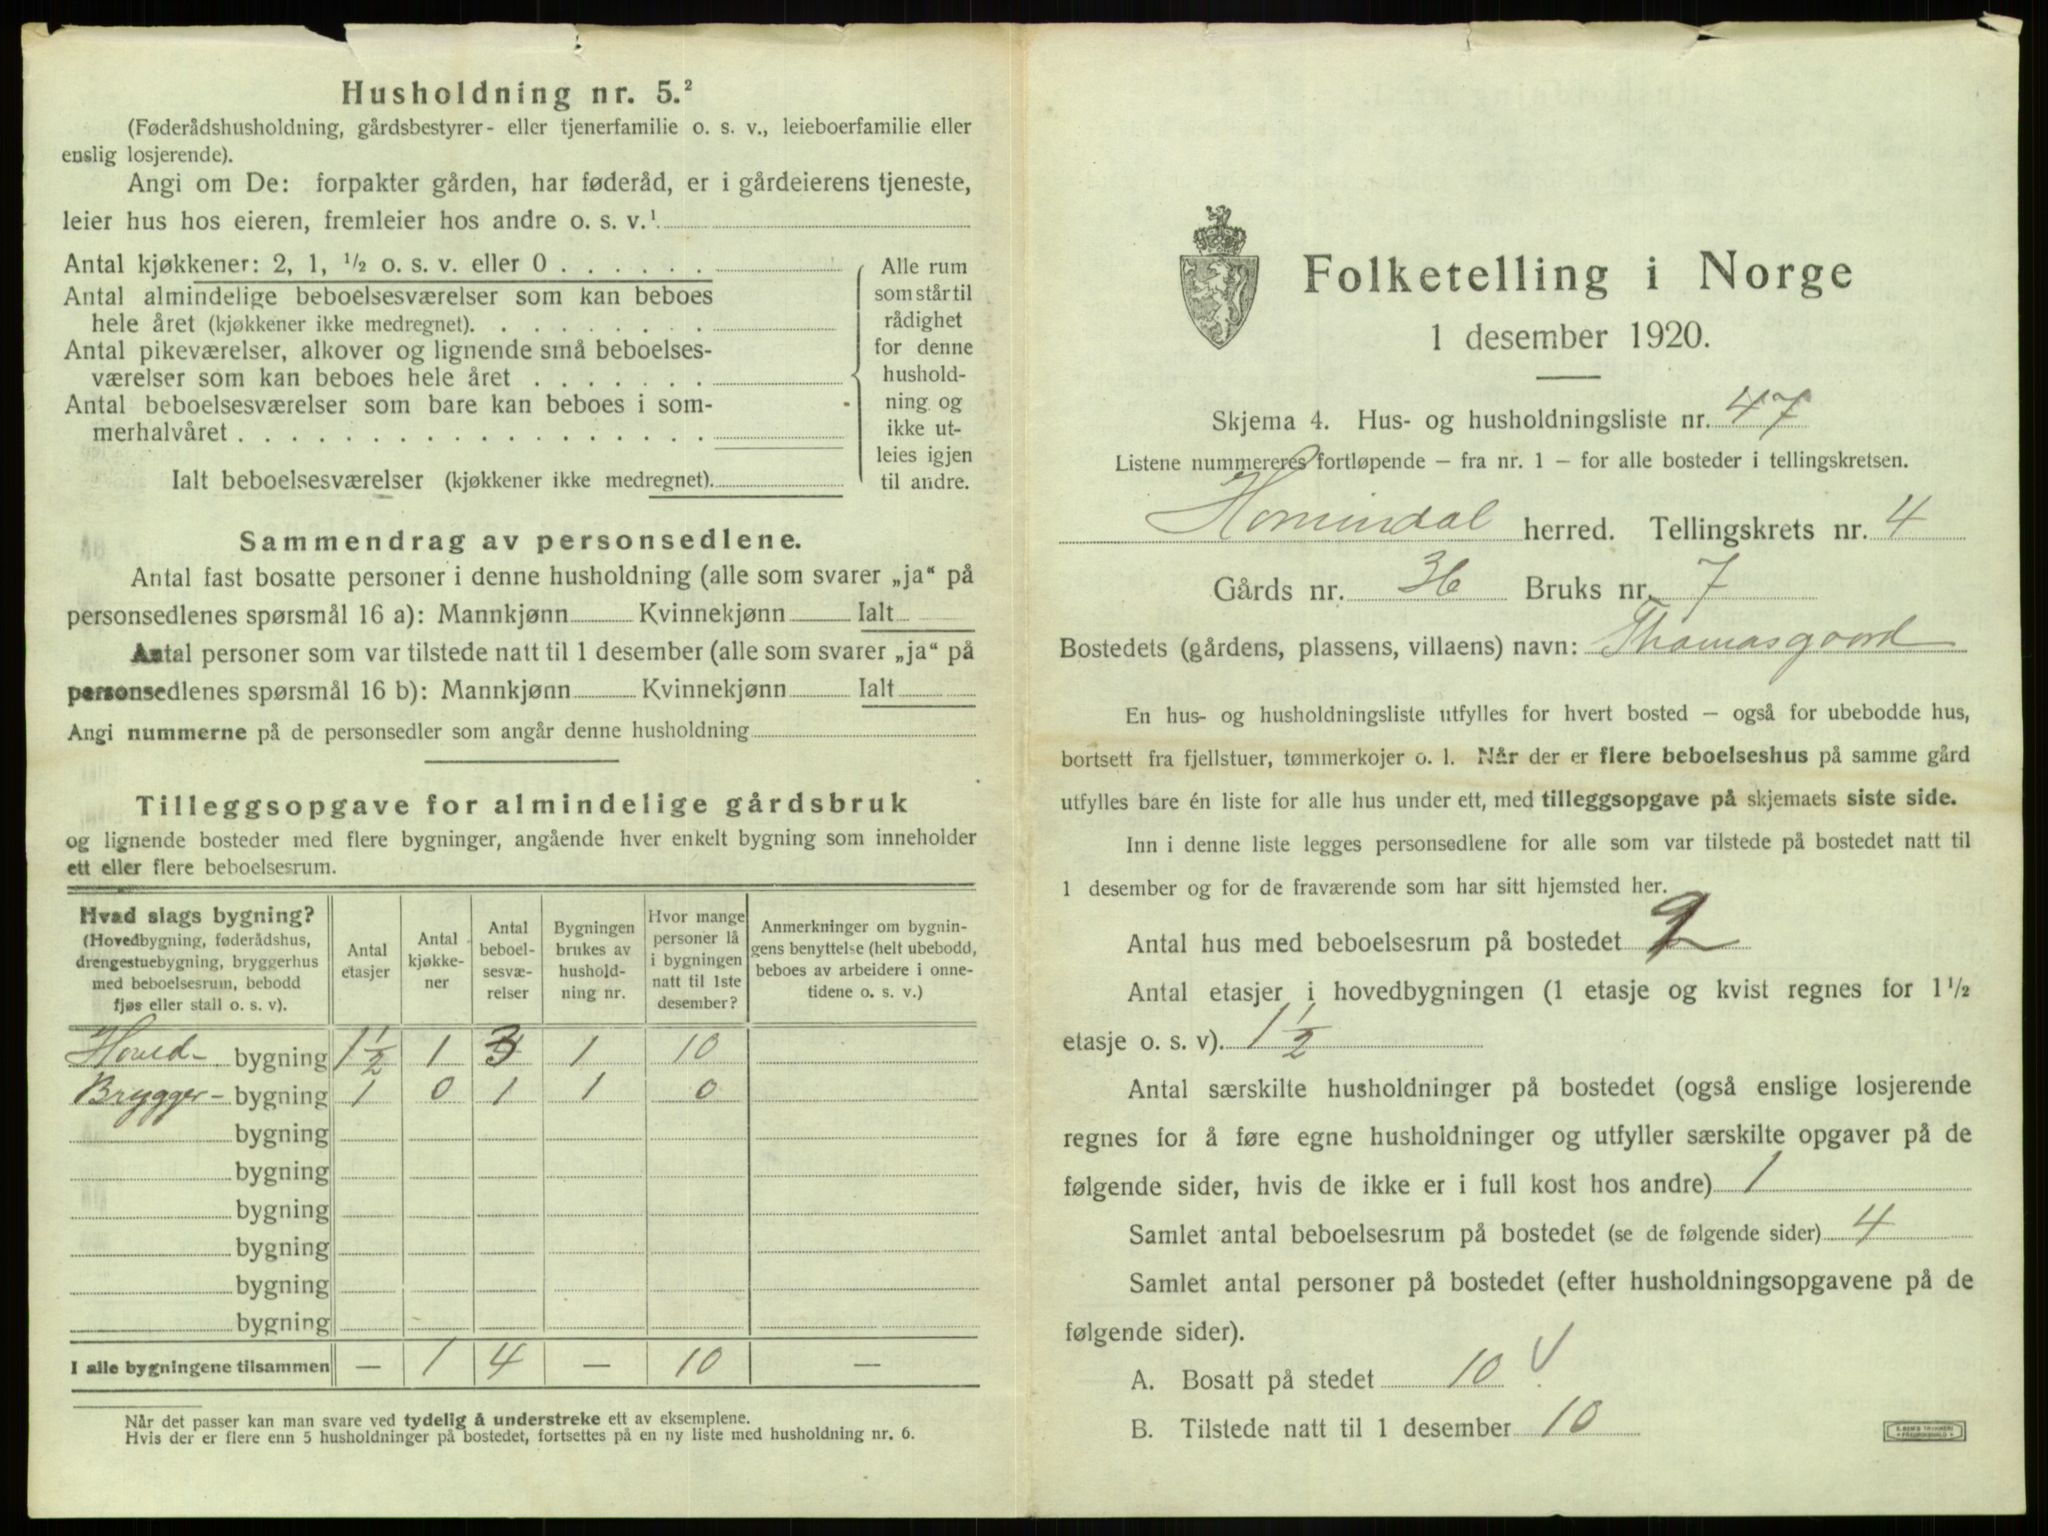 Husholdning nr. 5.²
(Føderådshusholdning, gårdsbestyrer- eller tjenerfamilie o. s. v., leieboerfamilie eller
enslig losjerende).
Angi om De: forpakter gården, har føderåd, er i gårdeierens tjeneste,
leier hus hos eieren, fremleier hos andre o. s. v.¹
Antal kjøkkener: 2, 1, ½ o. s. v. eller 0
Antal almindelige beboelsesværelser som kan beboes
hele året (kjøkkener ikke medregnet).
Antal pikeværelser, alkover og lignende små beboelses-
værelser som kan beboes hele året
Antal beboelsesværelser som bare kan beboes i som-
merhalvåret
Ialt beboelsesværelser (kjøkkener ikke medregnet).
Alle rum
som står til
rådighet
for denne
hushold-
ning og
ikke ut-
leies igjen
til andre.
Sammendrag av personsedlene.
Antal fast bosatte personer i denne husholdning (alle som svarer „ja“ på
personsedlenes spørsmål 16 a): Mannkjønn Kvinnekjønn Ialt
Antal personer som var tilstede natt til 1 desember (alle som svarer „ja“ på
personsedlenes spørsmål 16 b): Mannkjønn Kvinnekjønn Ialt
Angi nummerne på de personsedler som angår denne husholdning
Tilleggsopgave for almindelige gårdsbruk
og lignende bosteder med flere bygninger, angående hver enkelt bygning som inneholder
ett eller flere beboelsesrum.
Hvad slags bygning?
(Hovedbygning, føderådshus,
drengestuebygning, bryggerhus
med beboelsesrum, bebodd
fjøs eller stall o. s. v).
Antal
etasjer
Antal
kjøkke-
ner
Antal
beboel-
sesvæ-
relser
Bygningen
brukes av
hushold-
ning nr.
Hvor mange
personer lå
i bygningen
natt til 1ste
desember?
Anmerkninger om bygnin-
gens benyttelse (helt ubebodd,
beboes av arbeidere i onne-
tidene o. s. v.)
Hoved- bygning 1½ 1 3 1 10
Brygger- bygning 1 0 1 1 0
bygning
bygning
bygning
bygning
bygning
bygning
I alle bygningene tilsammen — 1 4 — 10 —
Når det passer kan man svare ved tydelig å understreke ett av eksemplene.
Hvis der er flere enn 5 husholdninger på bostedet, fortsettes på en ny liste med husholdning nr. 6.
Folketelling i Norge
1 desember 1920.
Skjema 4. Hus- og husholdningsliste nr. 47
Listene nummereres fortløpende – fra nr. 1 – for alle bosteder i tellingskretsen.
Hornindal herred. Tellingskrets nr. 4
Gårds nr. 36 Bruks nr. 7
Bostedets (gårdens, plassens, villaens) navn: Thomasgaard
En hus- og husholdningsliste utfylles for hvert bosted – også for ubebodde hus,
bortsett fra fjellstuer, tømmerkojer o. l. Når der er flere beboelseshus på samme gård
utfylles bare én liste for alle hus under ett, med tilleggsopgave på skjemaets siste side.
Inn i denne liste legges personsedlene for alle som var tilstede på bostedet natt til
1 desember og for de fraværende som har sitt hjemsted her.
Antal hus med beboelsesrum på bostedet 2
Antal etasjer i hovedbygningen (1 etasje og kvist regnes for 1½
etasje o. s. v). 1½
Antal særskilte husholdninger på bostedet (også enslige losjerende
regnes for å føre egne husholdninger og utfyller særskilte opgaver på de
følgende sider, hvis de ikke er i full kost hos andre) 1
Samlet antal beboelsesrum på bostedet (se de følgende sider) 4
Samlet antal personer på bostedet (efter husholdningsopgavene på de
følgende sider).
A. Bosatt på stedet 10 √
B. Tilstede natt til 1 desember 10